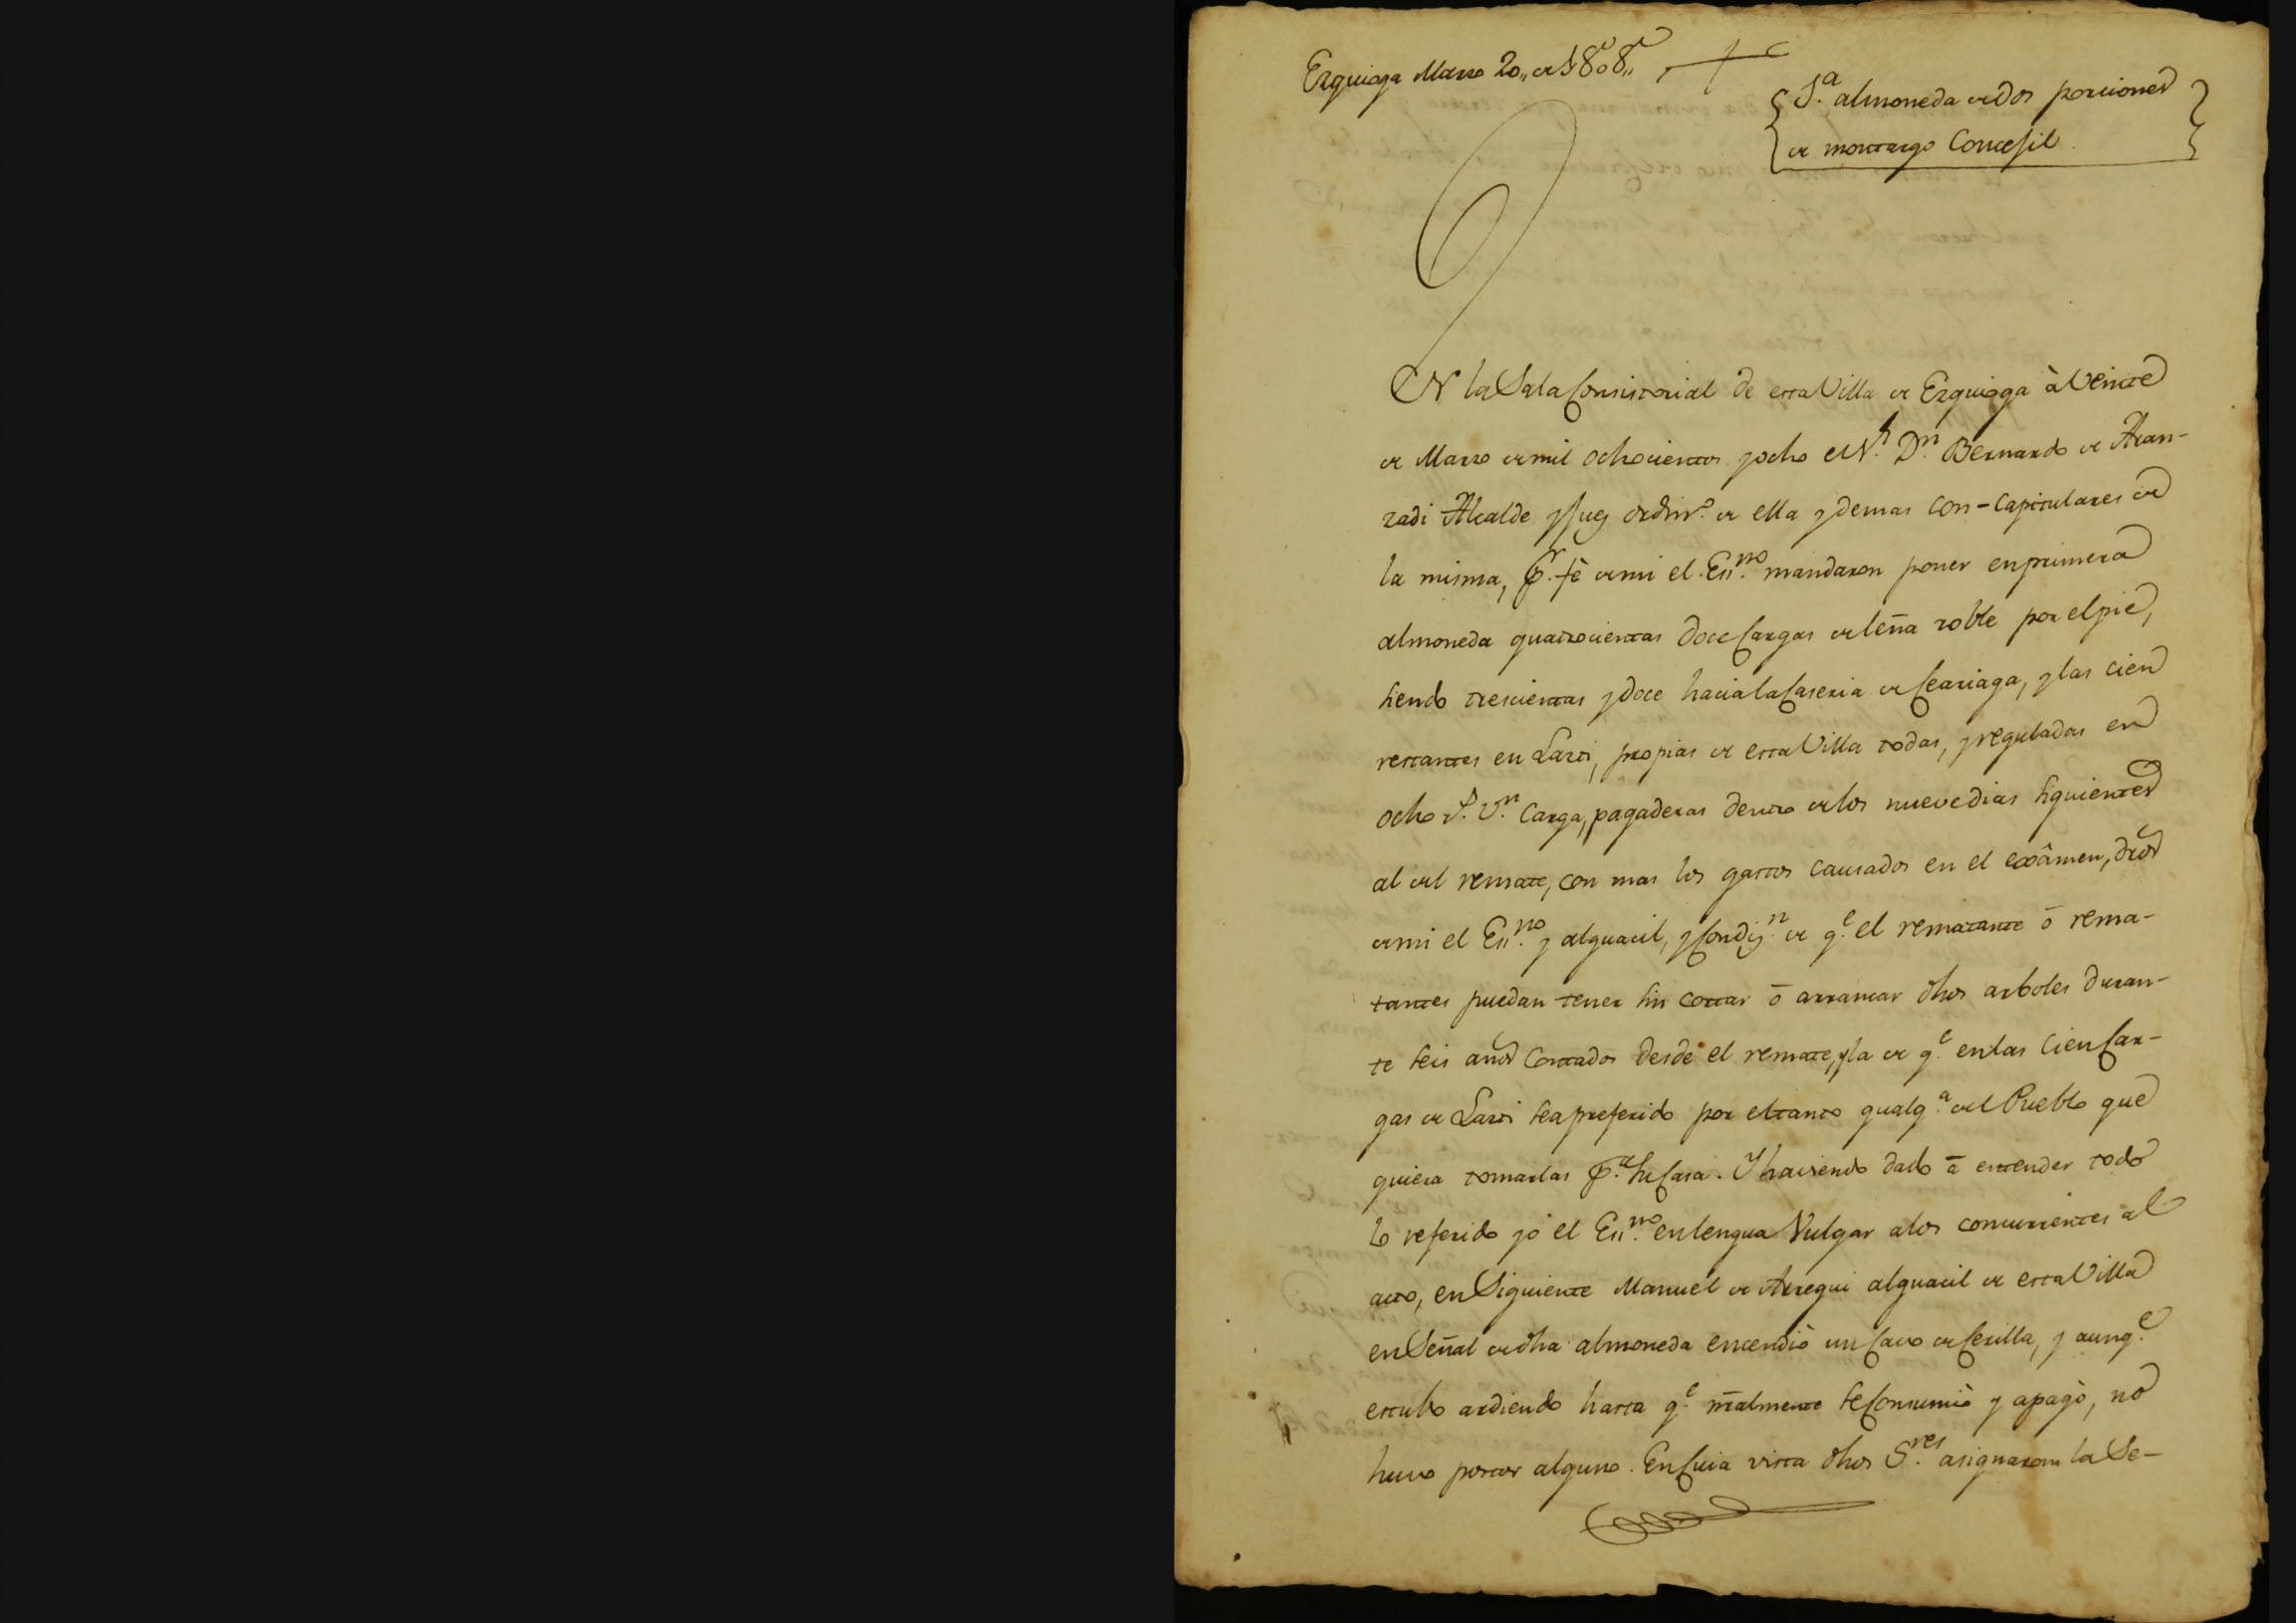 Ezquioga Marzo 20,, de 1808,,
1.ª almoneda de dos porciones
de montazgo Concejil.
EN la Sala Consistorial de esta Villa de Ezquioga à veinte
de Marzo de mil ochocientos y ocho el S.r D.n Bernardo de Aran-
zadi Alcalde y Juez ordin.º de ella y demas con-capitulares de
la misma, p.r fè de mi el Ess.no mandaron poner en primera
almoneda quatrocientas doce Cargas de leña roble por el pie,
siendo trescientas y doce hacia la Caseria de Ceariaga, y las cien
restantes en Larti, propias de esta Villa todas, y reguladas en
ocho r.s v.n Carga, pagaderas dentro de los nueve dias siguientes
al del remate, con mas los gastos causados en el exâmen, dros
de mi el Ess.no y alguacil, y Condiz.n de q.e el rematante ó rema-
tantes puedan tener sin cortar ó arrancar dhos arboles duran-
te seis años Contados desde el remate, y la de q.e en las Cien Car-
gas de Larti sea preferido por el tanto qualq.a del Pueblo que
quiera tomarlas p.a su Casa. Y haviendo dado â entender todo
lo referido yo el Ess.no en lengua Vulgar a los concurrentes al
acto, en Siguiente Manuel de Arregui alguacil de esta Villa
en Señal de dha almoneda encendiò un Cavo de Cerilla, y aunq.e
estubo ardiendo hasta q.e nralmente se Consumiò y apagò, no
huvo postor alguno. En Cuia vista dhos S.res asignaron la Se-